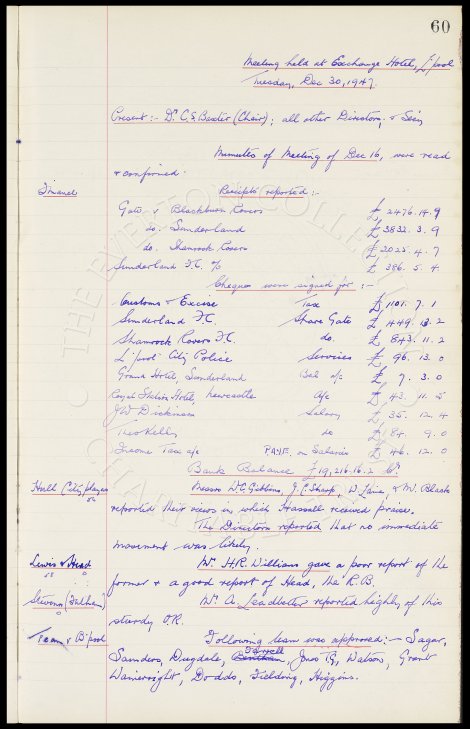 60
Meeting held at Exchange Hotel, L'pool
Tuesday, Dec 30, 1947.
Present :- Dr C.S. Baxter (Chair); all other Directors, & Sec'y
Minutes of Meeting of Dec 16, were read
& confirmed.
Finance Receipts reported :-
Gate v Blackburn Rovers £ 2476.14.9
do. Sunderland £ 3832.3.9
do. Shamrock Rovers £ 2025.4.7
Sunderland F.C. % £ 386.5.4
Cheques were signed for :-
Customs & Excise Tax £ 1101.7.1
Sunderland F.C. Share Gate £ 1449.13.2
Shamrock Rovers F.C. do. £ 843.11.2
L'pool City Police Services £ 96.13.0
Grand Hotel, Sunderland Bal a/c £ 7.3.0
Royal Station Hotel, Newcastle a/c £ 43.11.5
J.W. Dickinson Salary £ 35.12.4
Theo Kelly do £ 84.9.0
Income Tax a/c PAYE on Salaries £ 46.12.0
Bank Balance £19,216.16.2
Hull City player Messrs W.C. Gibbins, J. Sharp, W. Lane, & W. Black
reported their views in which Hassall received praise.
The Directors reported that no immediate
movement was likely.
Lewis & Head Mr. H.R. Williams gave a poor report of the
former & a good report of Head, the R.B.
Stevens (Fulham) Mr. A. Leadbetter reported highly of this
sturdy O.R.
Team v B'pool Following team was approved :- Sagar,
Saunders, Dugdale, Farrell, Jones T.G, Watson, Grant
Wainwright, Dodds, Fielding, Higgins.
THE EVERTON COLLECTION
CHARITABLE